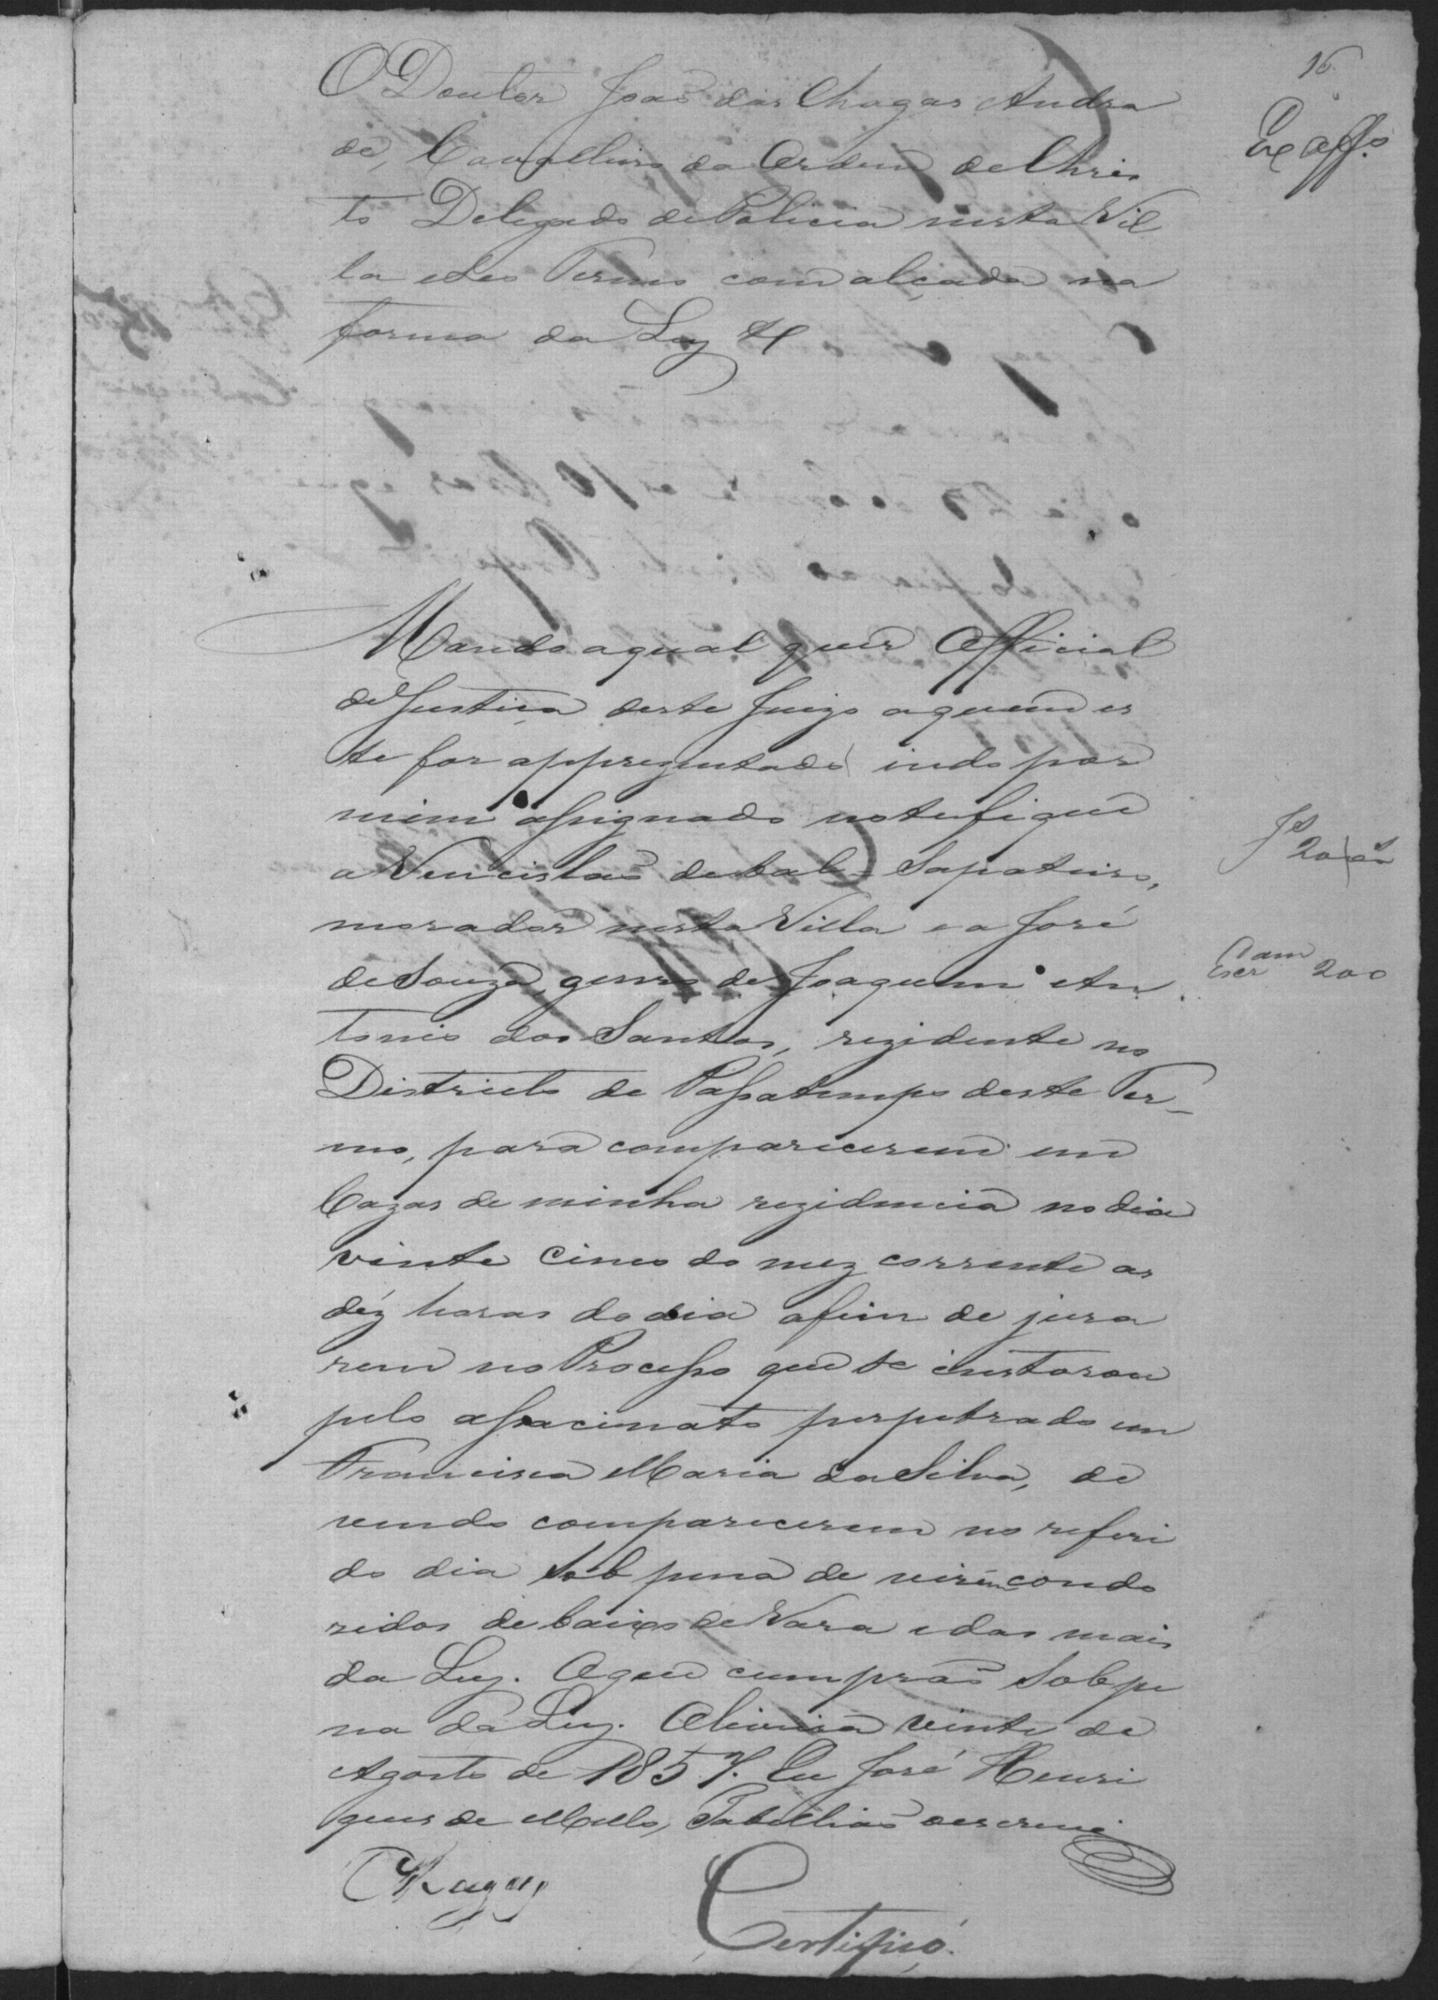 16
Ex aff.º
O Doutor João das Chagas Andra
de, Cavalleiro da Ordem de Chris
to Delegado de Policia nesta Vil
la e seo Termo com alçada na
forma da Ley &
Mando a qual quer Official
de Justiça deste Juizo a quem es
te for apprezentado indo por
mim assignado notefique
a Venceslao de tal Sapateiro,
morador nesta Villa e a José
de Souza, genro de Joaquim An
tonio dos Santos, rezidente no
Districto de Passatempo deste Ter-
mo, para comparecerem em
Cazas de minha rezidencia no dia
vinte cinco do mez corrente as
déz horas do dia afim de jura
rem no Processo que se enstorou
pelo assacinato perpetrado em
Francisca Maria da Silva, de
vendo comparecerem no referi
do dia sob pena de virem condo
zidos de baixo de Vara e das mais
da Ley. O que cumprão sob pe
na da Ley. Oliveira vinte de
Agosto de 1857. Eu José Henri
ques de Mello, Tabellião o escrevi
Chagas
Certifico
200
200